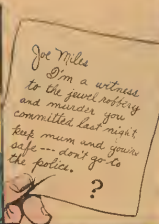 Joe Miles
I'm a witness
to the jewel robbery
and murder you
committed last night
keep mum and you're
safe --- don't go to
the police.
?